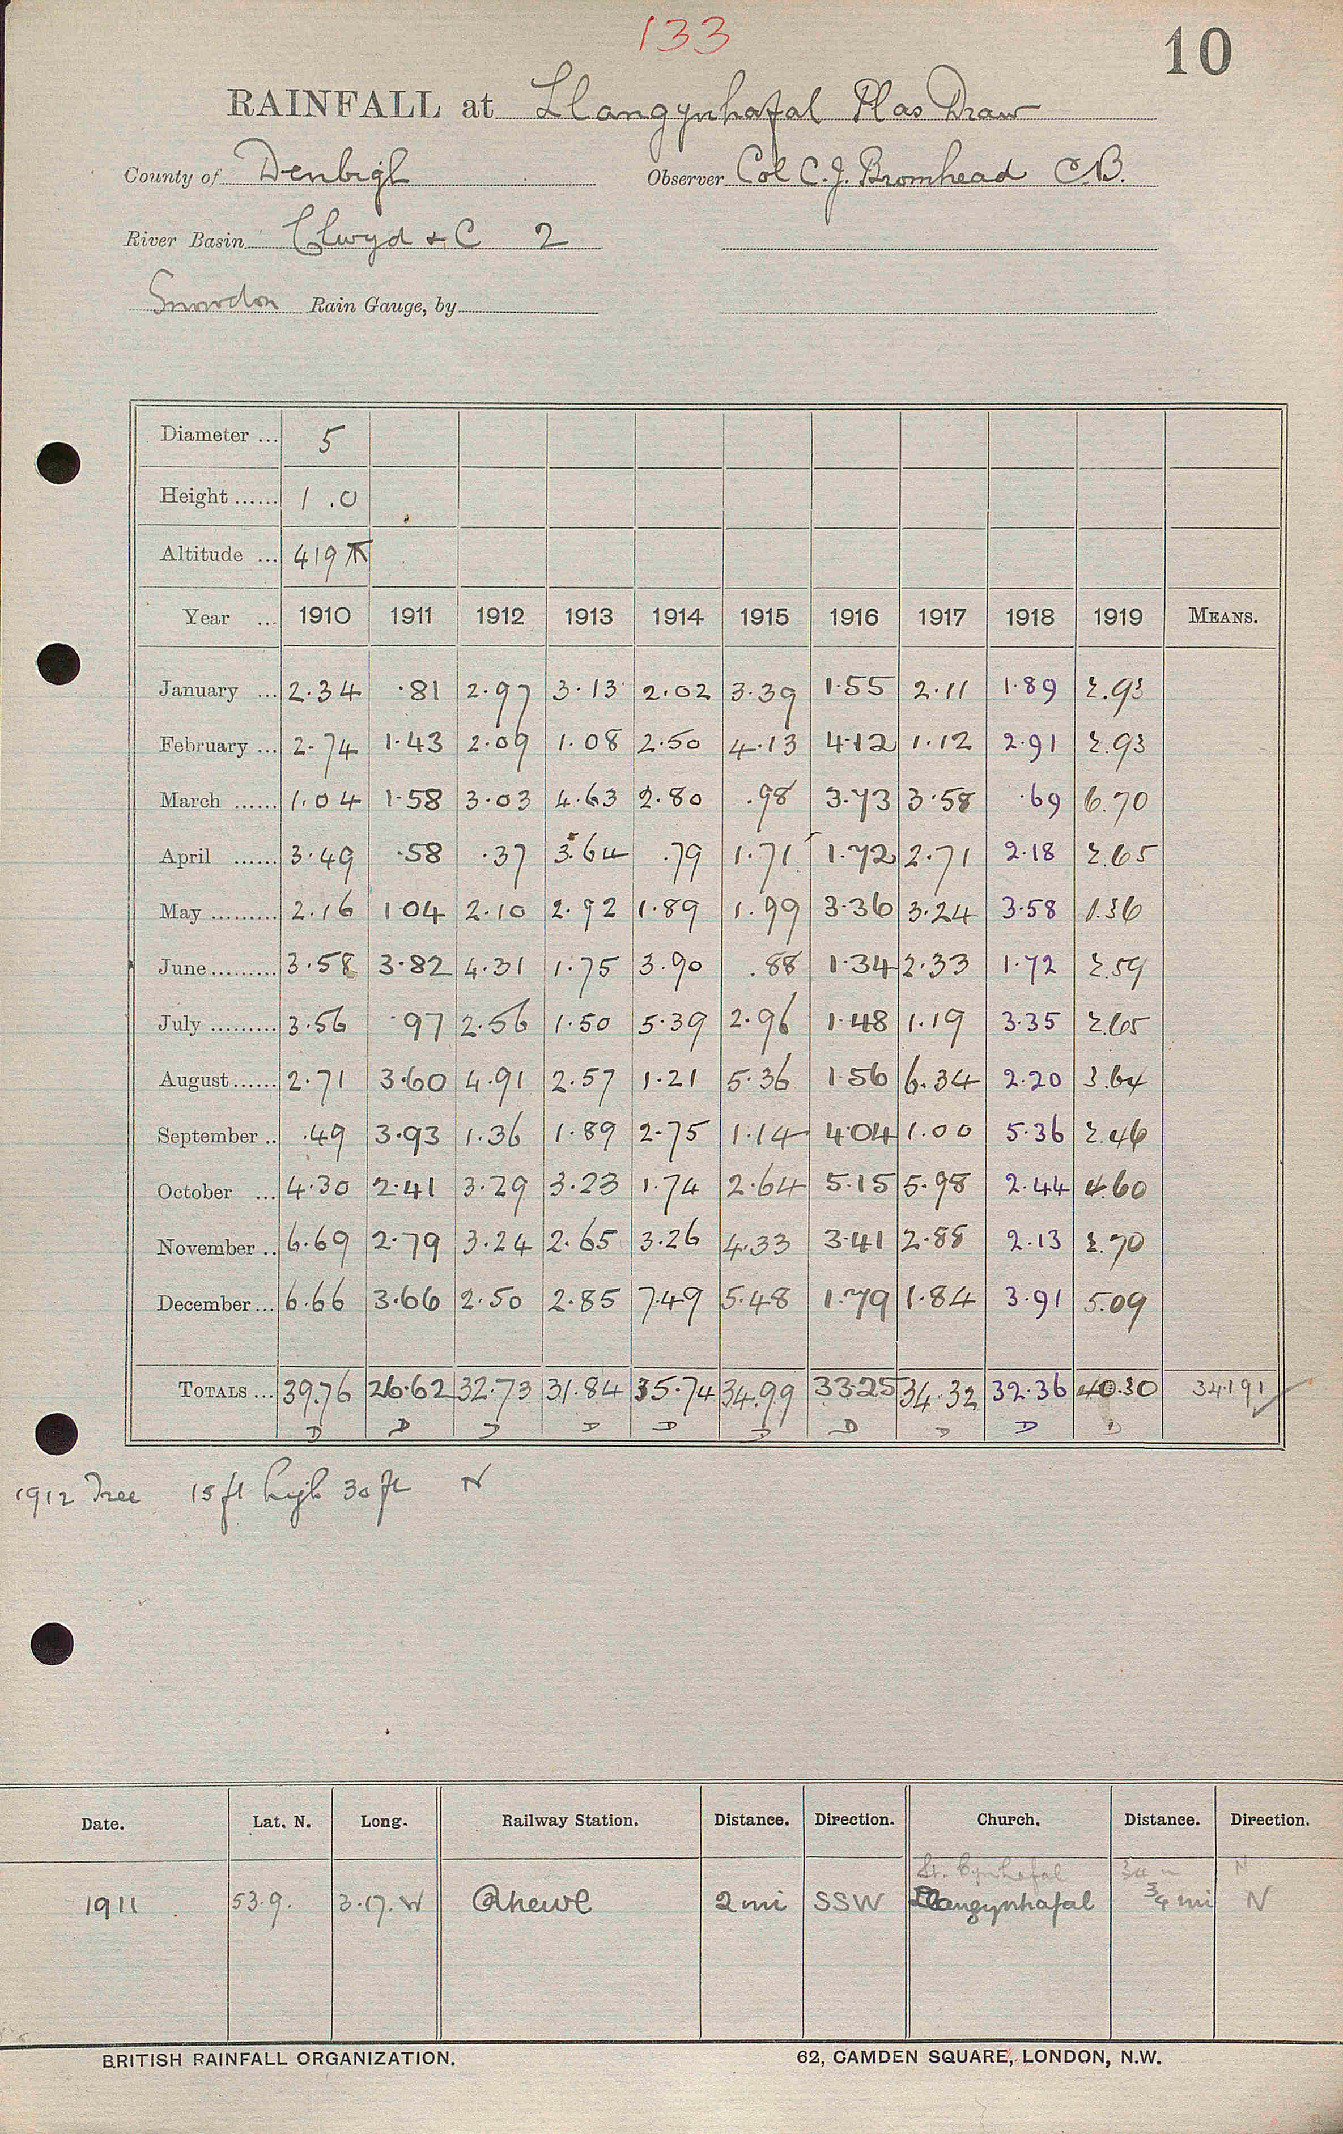 133
10
RAINFALL at Llangynhafal Plas Draw
County of Denbigh Observer Col C. J. Bromhead C.B.
River Basin Clwyd & C 2
Snowdon Rain Gauge, by
Diameter ... 5
Height ...... 1 .0
Altitude ... 419
Year ... 1910 1911 1912 1913 1914 1915 1916 1917 1918 1919 MEANS.
January ... 2.34 .81 2.97 3.13 2.02 3.39 1.55 2.11 1.89 2.93
February ... 2.74 1.43 2.09 1.08 2.50 4.13 4.12 1.12 2.91 2.93
March ...... 1.04 1.58 3.03 4.63 2.80 .98 3.73 3.58 .69 6.70
April ...... 3.49 .58 .37 3.64 .79 1.71 1.72 2.71 2.18 2.65
May ......... 2.16 1 04 2.10 2.92 1.89 1.99 3.36 3.24 3.58 1.36
June ......... 3.58 3.82 4.31 1.75 3.90 .88 1.34 2.33 1.72 2.59
July ......... 3.56 .97 2.56 1.50 5.39 2.96 1.48 1.19 3.35 2.65
August ...... 2.71 3.60 4.91 2.57 1.21 5.36 1.56 6.34 2.20 3.64
September .. .49 3.93 1.36 1.89 2.75 1.14 4.04 1.00 5.36 2.46
October ... 4.30 2.41 3.29 3.23 1.74 2.64 5.15 5.98 2.44 4.60
November .. 6.69 2.79 3.24 2.65 3.26 4.33 3.41 2.88 2.13 2.70
December ... 6.66 3.66 2.50 2.85 7.49 5.48 1.79 1.84 3.91 5.09
TOTALS ... 39.76 26.62 32.73 31.84 35.74 34.99 33.25 34.32 32.36 40.30 34.191
D D D D D D D D D D
1912 Tree 15 ft high 30 ft N
Date. Lat. N. Long. Railway Station. Distance. Direction. Church. Distance. Direction.
St. Cynhafal 3/4 m N
1911 53.9. 3.17. W Rhewl 2 mi SSW Llangynhafal 3/4 mi N
BRITISH RAINFALL ORGANIZATION. 62, CAMDEN SQUARE, LONDON, N.W.